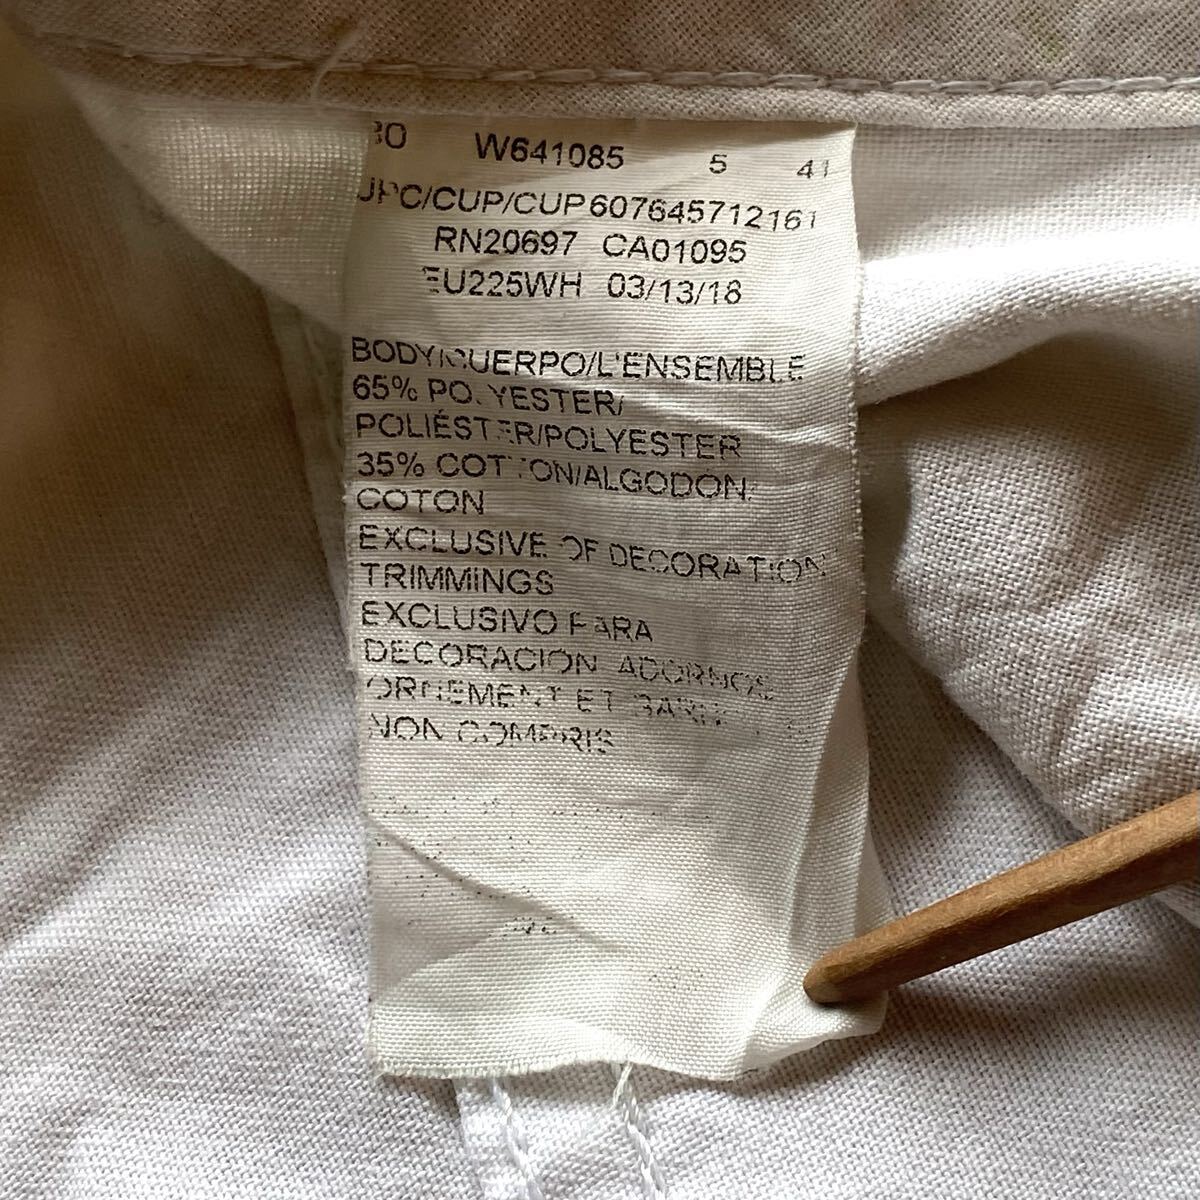 30 W641085 5 41
UPC/CUP/CUP607645712161
RN20697 CA01095
EU225WH 03/13/18
BODY/CUERPO/L'ENSEMBLE
65% POLYESTER/
POLIÉSTER/POLYESTER
35% COTTON/ALGODON/
COTON
EXCLUSIVE OF DECORATION
TRIMMINGS
EXCLUSIVO PARA
DECORACION ADORNOS
ORNEMENT ET
NON COMPRIS